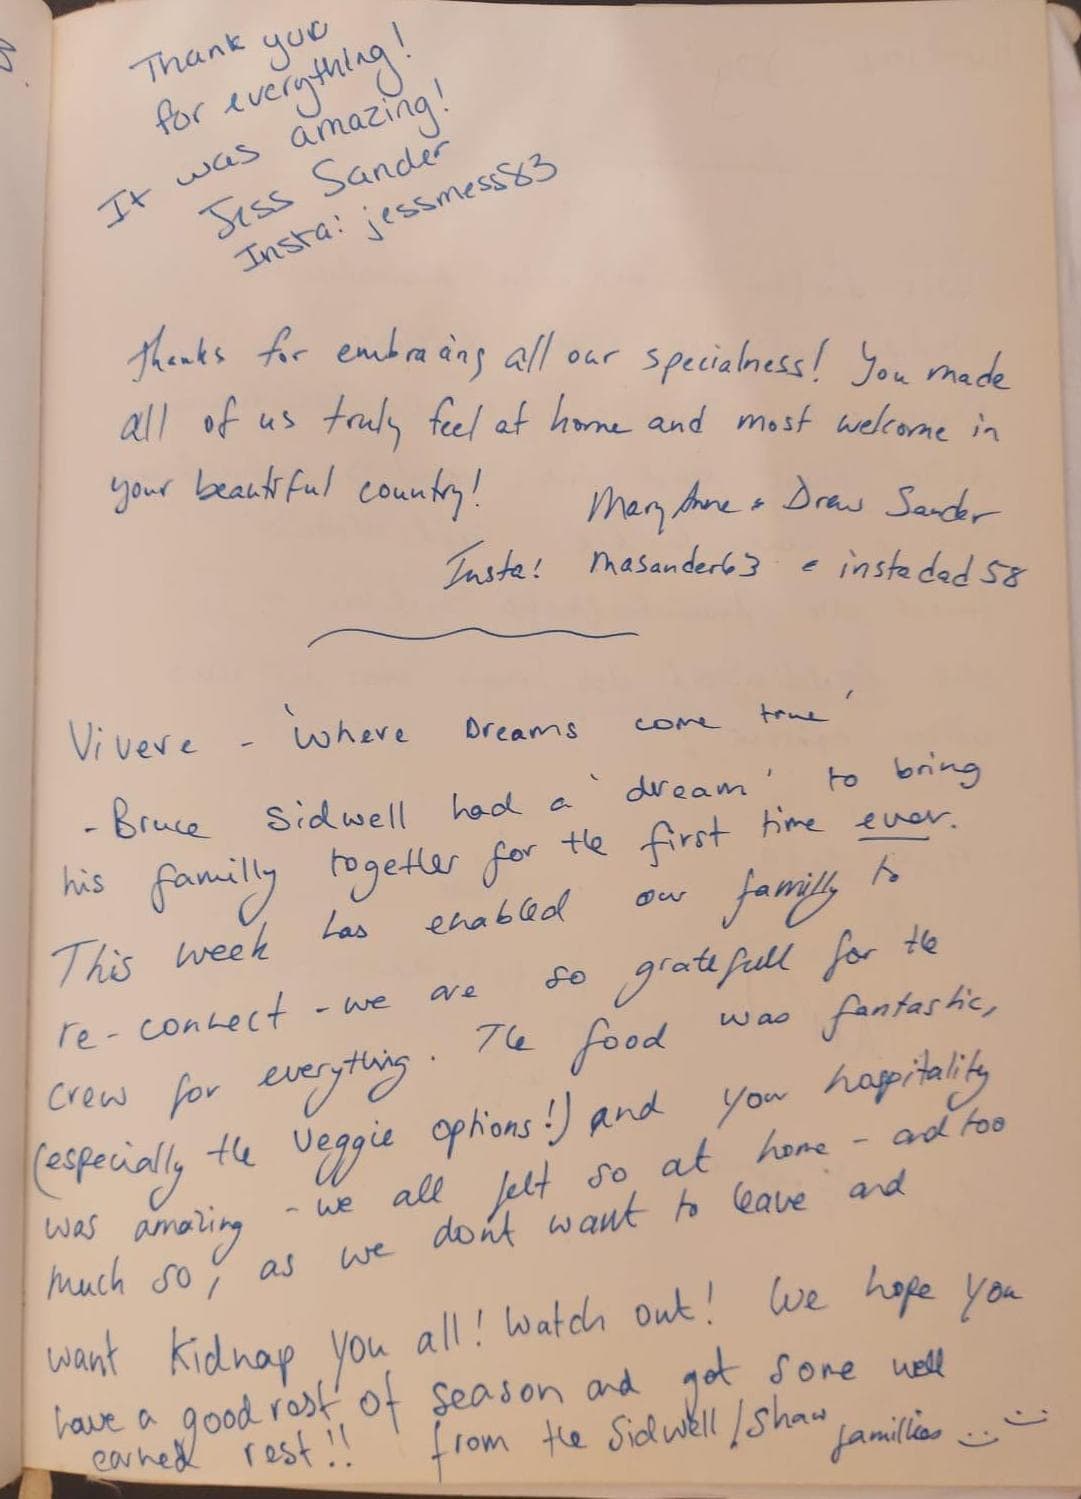 Thank you
for everything!
It was amazing!
Jess Sander
Insta: jessmess83
Thanks for embracing all our specialness! You made
all of us truly feel at home and most welcome in
your beautiful country!
Mary Anne & Drew Sander
Insta: masander63 & instadad58
Vivere - 'Where Dreams come true'
- Bruce Sidwell had a 'dream' to bring
his familly together for the first time ever.
This week has enabled our familly to
re-connect - we are so gratefull for the
crew for everything. The food was fantastic,
(especially the veggie options!) and your hospitality
was amazing - we all felt so at home - and too
much so, as we don't want to leave and
want kidnap you all! Watch out! We hope you
have a good rest of season and get some well
earned rest!! from the Sidwell/Shaw famillies :) :)